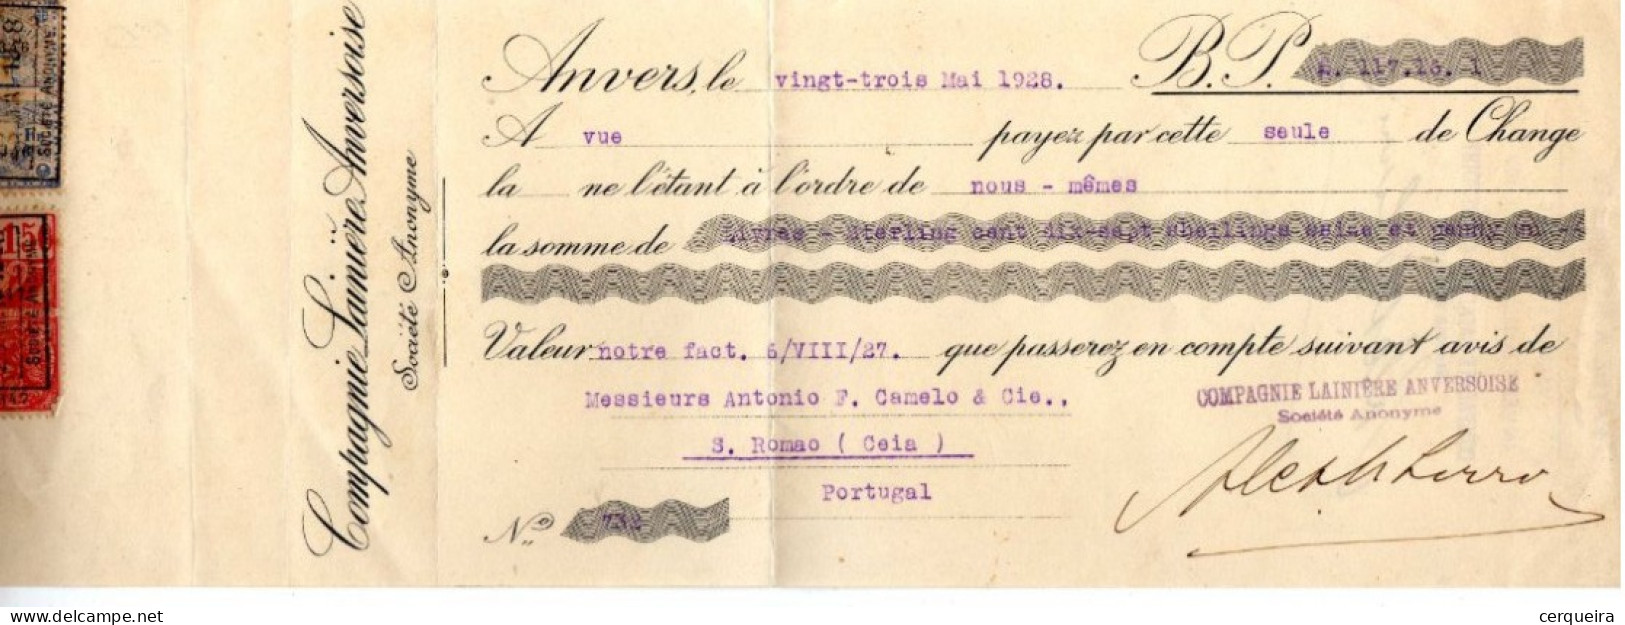 Compagnie Lainière Anversoise
Société Anonyme
Anvers, le vingt-trois Mai 1928. B.P. £. 117.16. 1
A vue payez par cette seule de Change
la ne l'étant à l'ordre de nous - mêmes
la somme de Livres - Sterling cent dix-sept shellings seize et penny un -
Valeur notre fact. 6/VIII/27. que passerez en compte suivant avis de
Messieurs Antonio F. Camelo & Cie.,
S. Romao ( Ceia )
Portugal
COMPAGNIE LAINIÈRE ANVERSOISE
Société Anonyme
No 732
SOCIÉTÉ ANONYME
15
delcampe.net
cerqueira